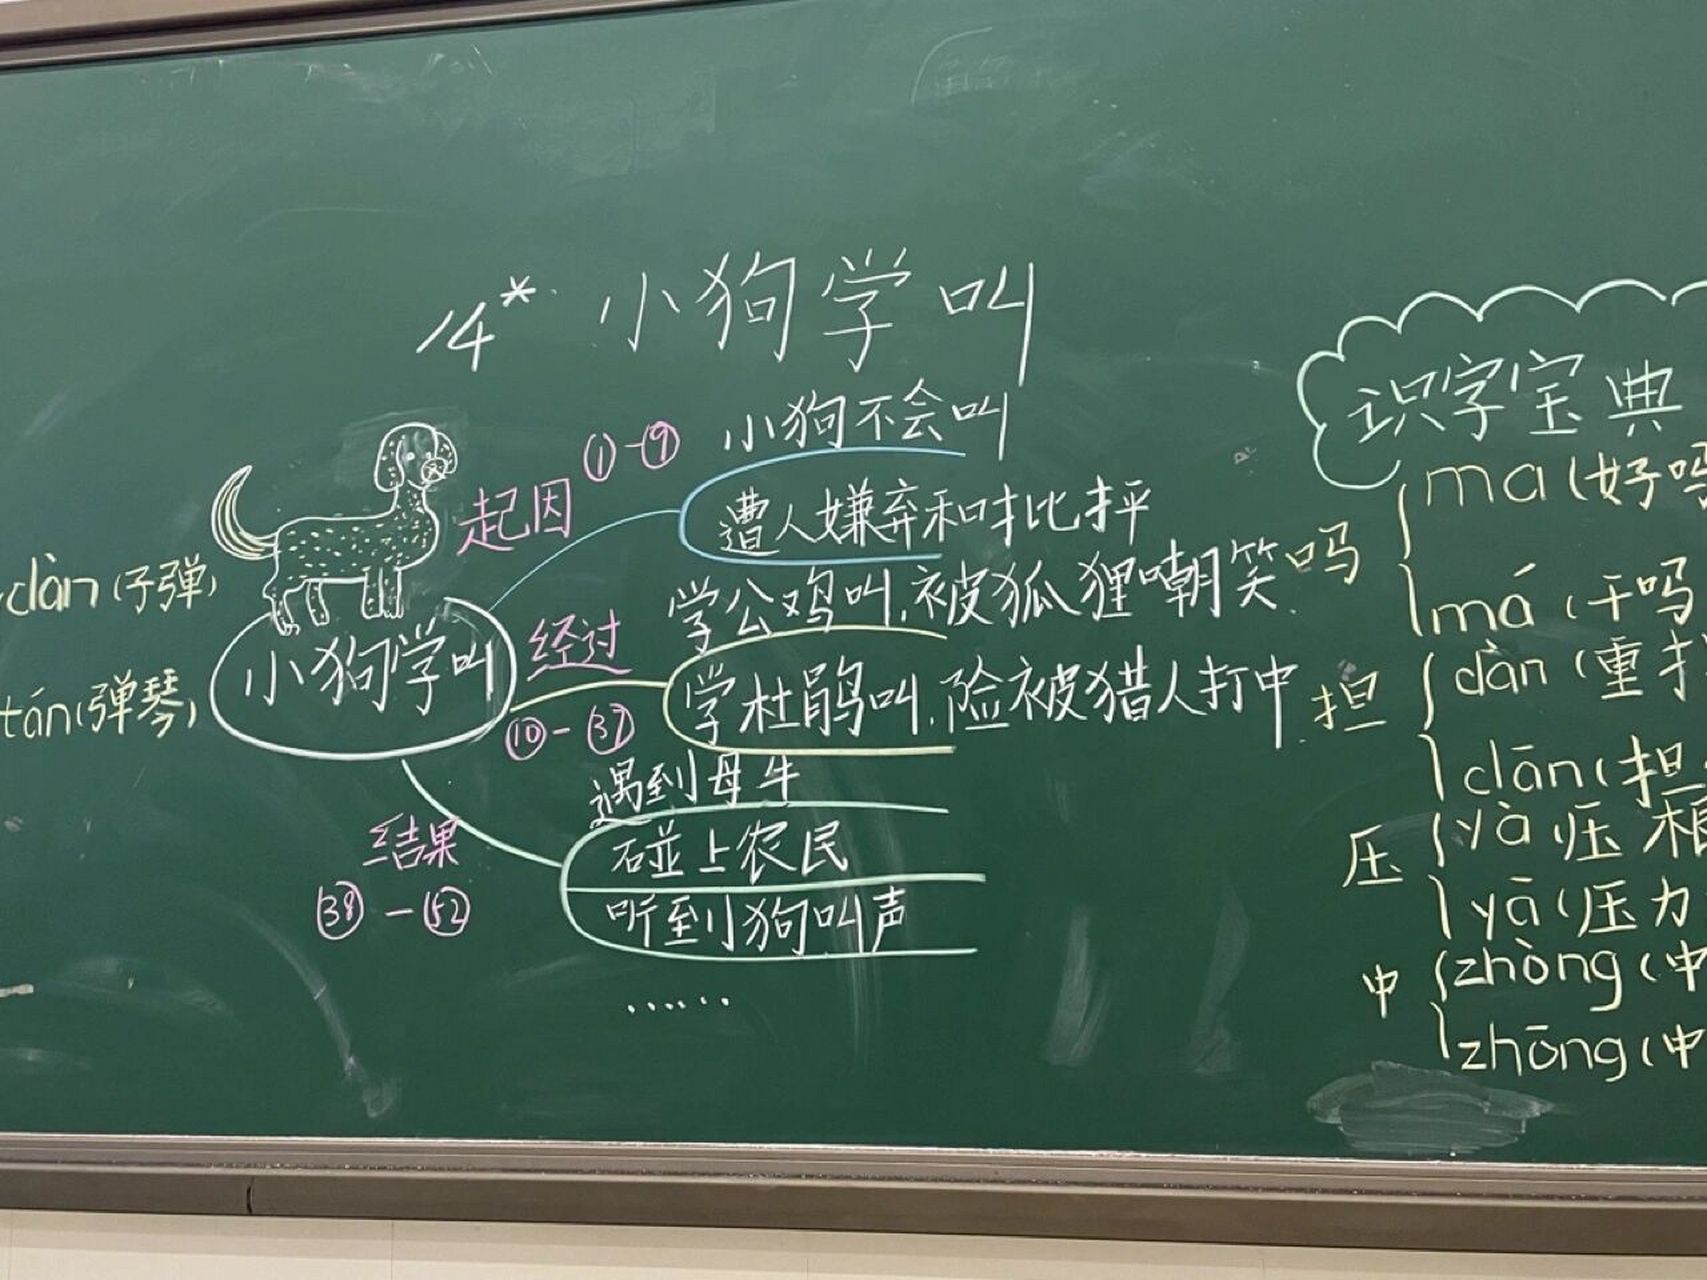 14* 小狗学叫
起因 ①-⑨
小狗不会叫
遭人嫌弃和批评
经过
⑩-㊲
学公鸡叫,被狐狸嘲笑.
学杜鹃叫,险被猎人打中.
小狗学叫
结果
㊳-52
遇到母牛
碰上农民
听到小狗叫声
……
dàn(子弹)
tán(弹琴)
识字宝典
吗
ma(好吗
má(干吗
担
dàn(重担
dān(担
压
yà 压根
yā(压力
中
zhòng(中
zhōng(中